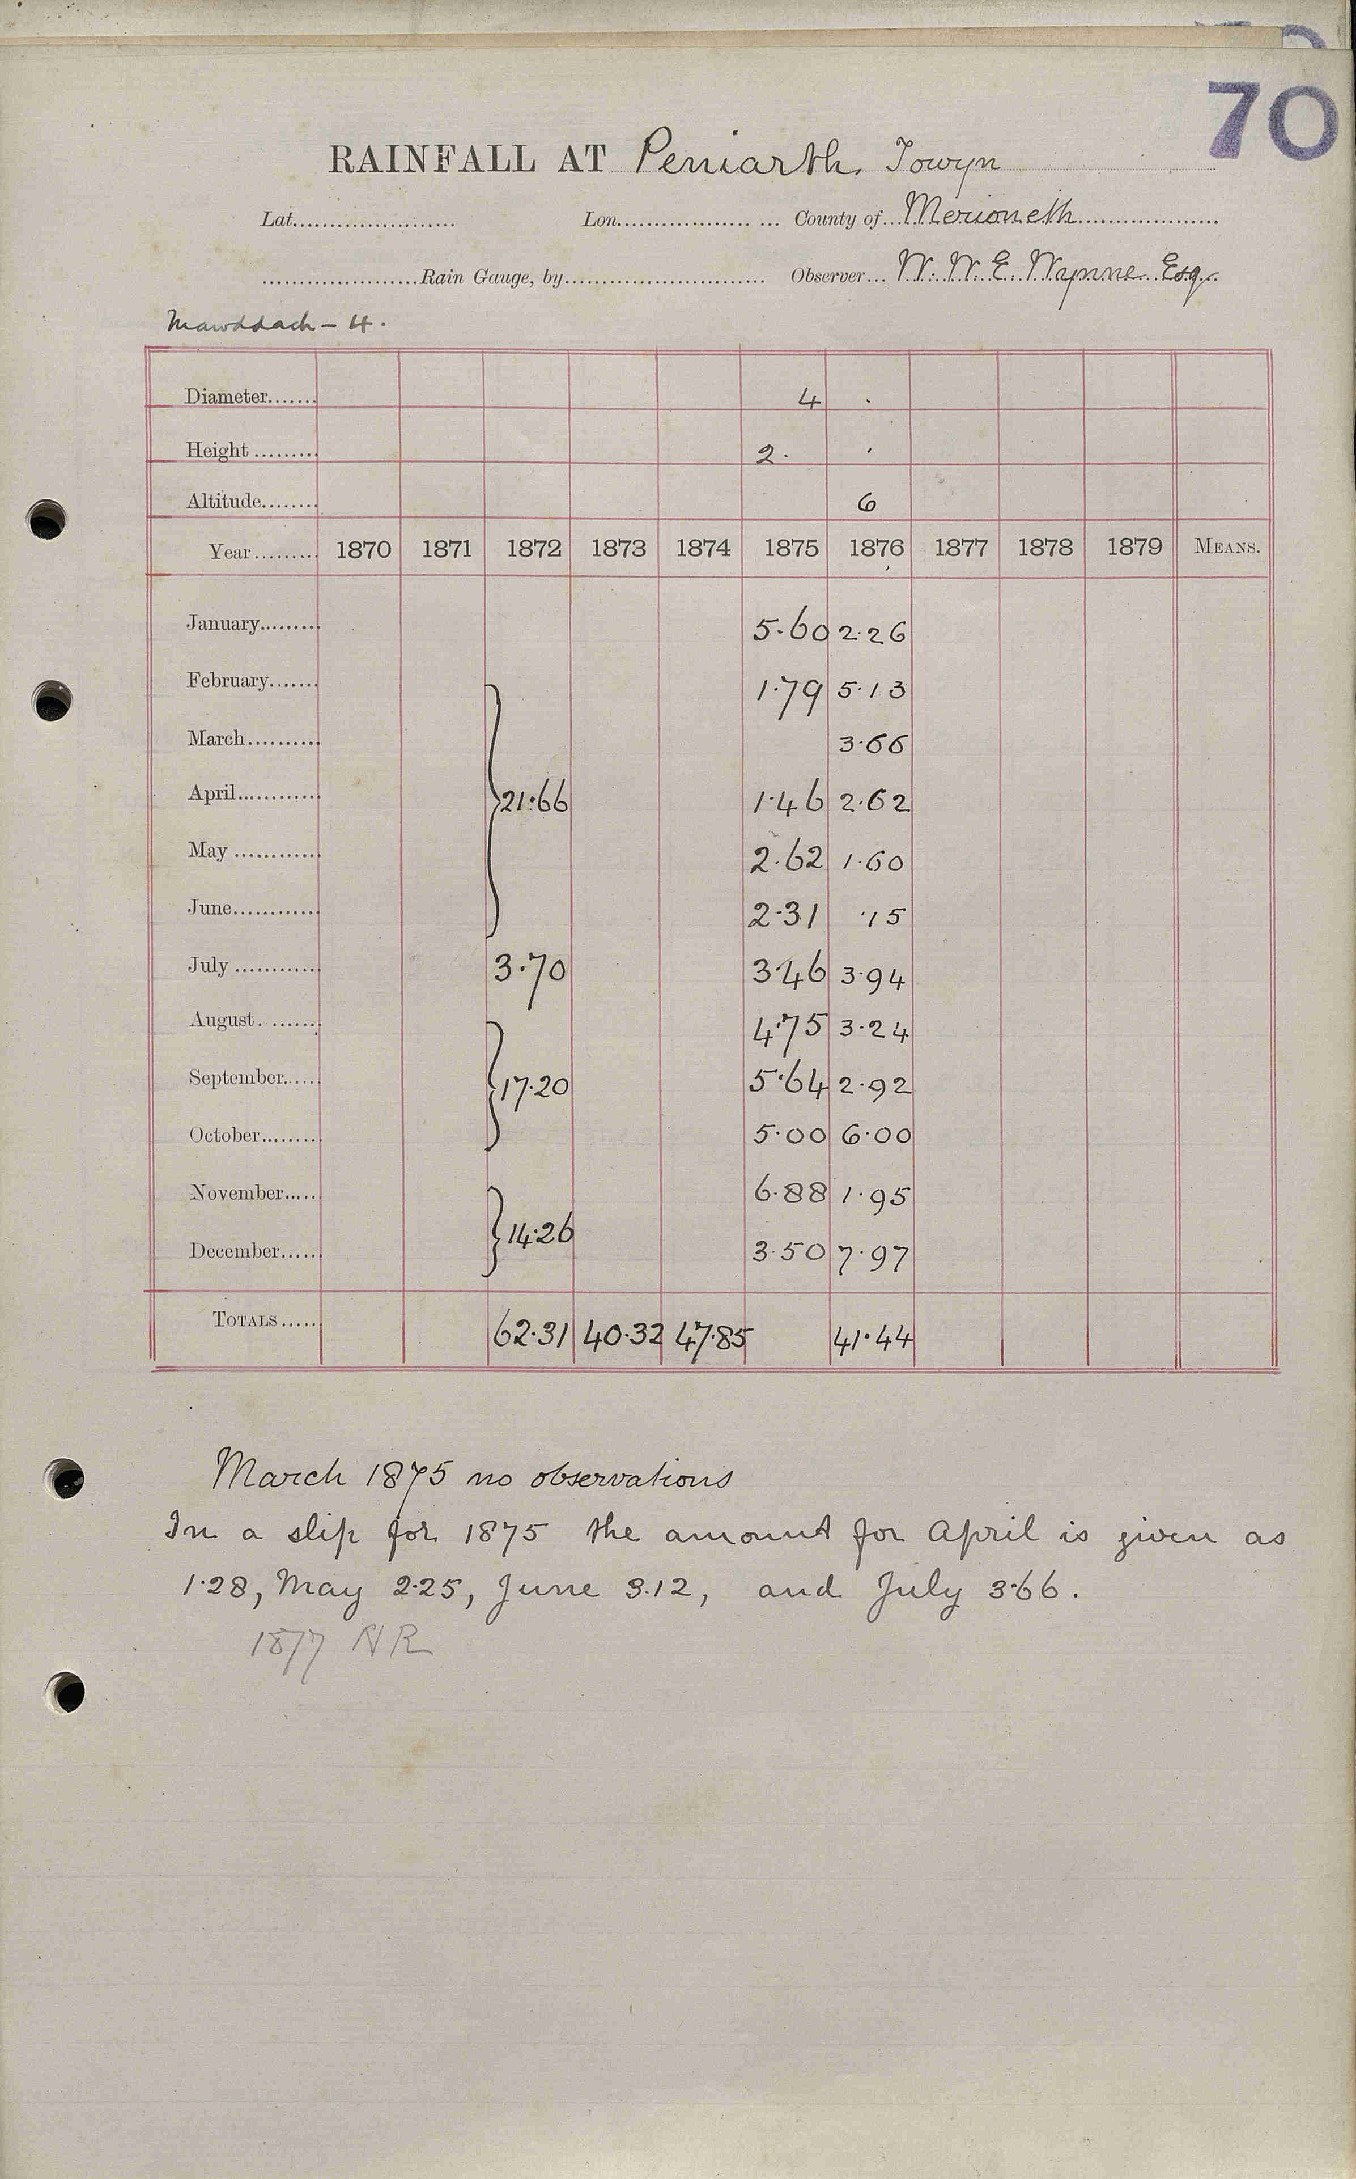 70
RAINFALL AT Peniarth, Towyn
Lat. Lon. County of Merioneth
Rain Gauge, by Observer W. W. E. Wynne Esq.
Mawddach - 4.
Diameter 4 .
Height 2. '
Altitude 6
Year 1870 1871 1872 1873 1874 1875 1876 1877 1878 1879 MEANS.
January 5.60 2.26
February 1.79 5.13
March 3.66
April 21.66 1.46 2.62
May 2.62 1.60
June 2.31 .15
July 3.70 3.46 3.94
August 4.75 3.24
September 17.20 5.64 2.92
October 5.00 6.00
November 6.88 1.95
December 14.26 3.50 7.97
TOTALS 62.31 40.32 47.85 41.44
March 1875 no observations
In a slip for 1875 the amount for April is given as
1.28, May 2.25, June 3.12, and July 3.66.
1877 NR